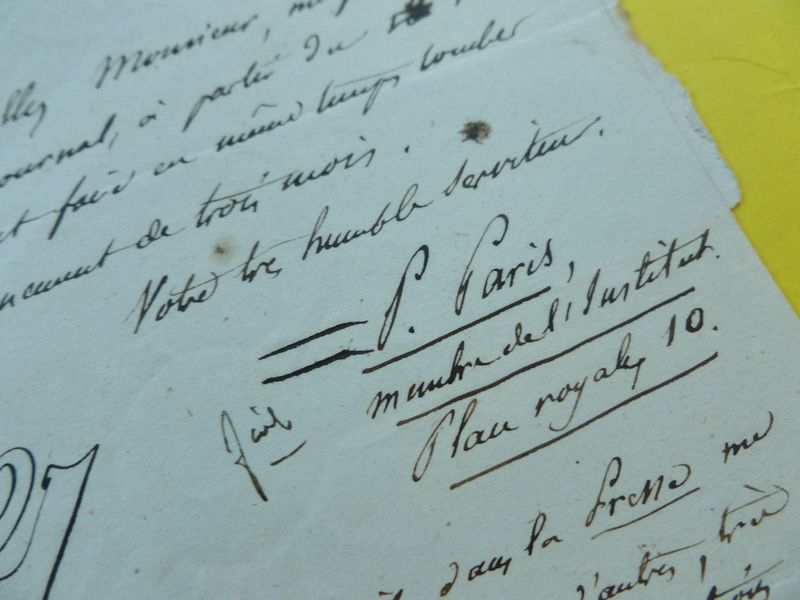 Monsieur,
journal, à partir du
faire en même temps tomber
de trois mois.
Votre très humble serviteur.
P. Paris,
membre de l'Institut.
Place royale, 10.
dans la Presse me
d'autres, très